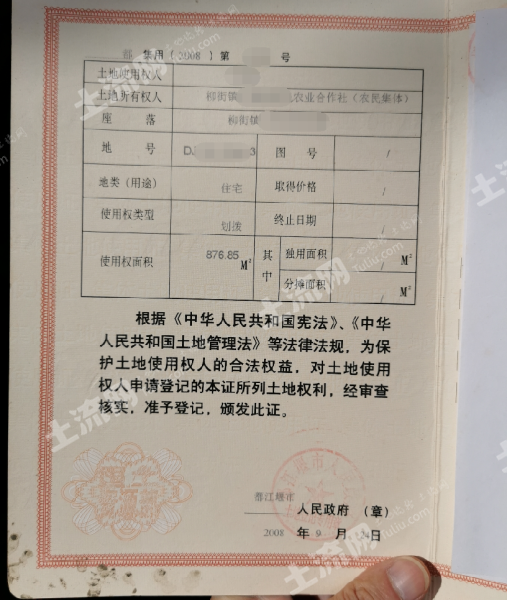 都 集用（2008）第 号
土地使用权人
土地所有权人 柳街镇 农业合作社（农民集体）
座 落 柳街镇
地 号 DJ 3 图 号 /
地类（用途） 住宅 取得价格 /
使用权类型 划拨 终止日期 /
使用权面积 876.85 M² 其中 独用面积 / M²
分摊面积 / M²
根据《中华人民共和国宪法》、《中华
人民共和国土地管理法》等法律法规，为保
护土地使用权人的合法权益，对土地使用
权人申请登记的本证所列土地权利，经审查
核实，准予登记，颁发此证。
都江堰市
人民政府（章）
2008 年 9 月 日
土流网
tuliu.com